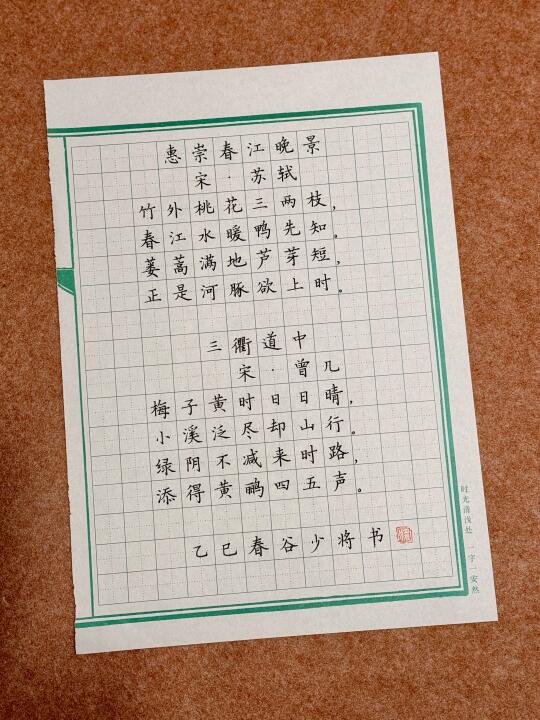 惠崇春江晚景
宋·苏轼
竹外桃花三两枝，
春江水暖鸭先知。
蒌蒿满地芦芽短，
正是河豚欲上时。
三衢道中
宋·曾几
梅子黄时日日晴，
小溪泛尽却山行。
绿阴不减来时路，
添得黄鹂四五声。
乙巳春谷少将书
时光清浅处 一字一安然